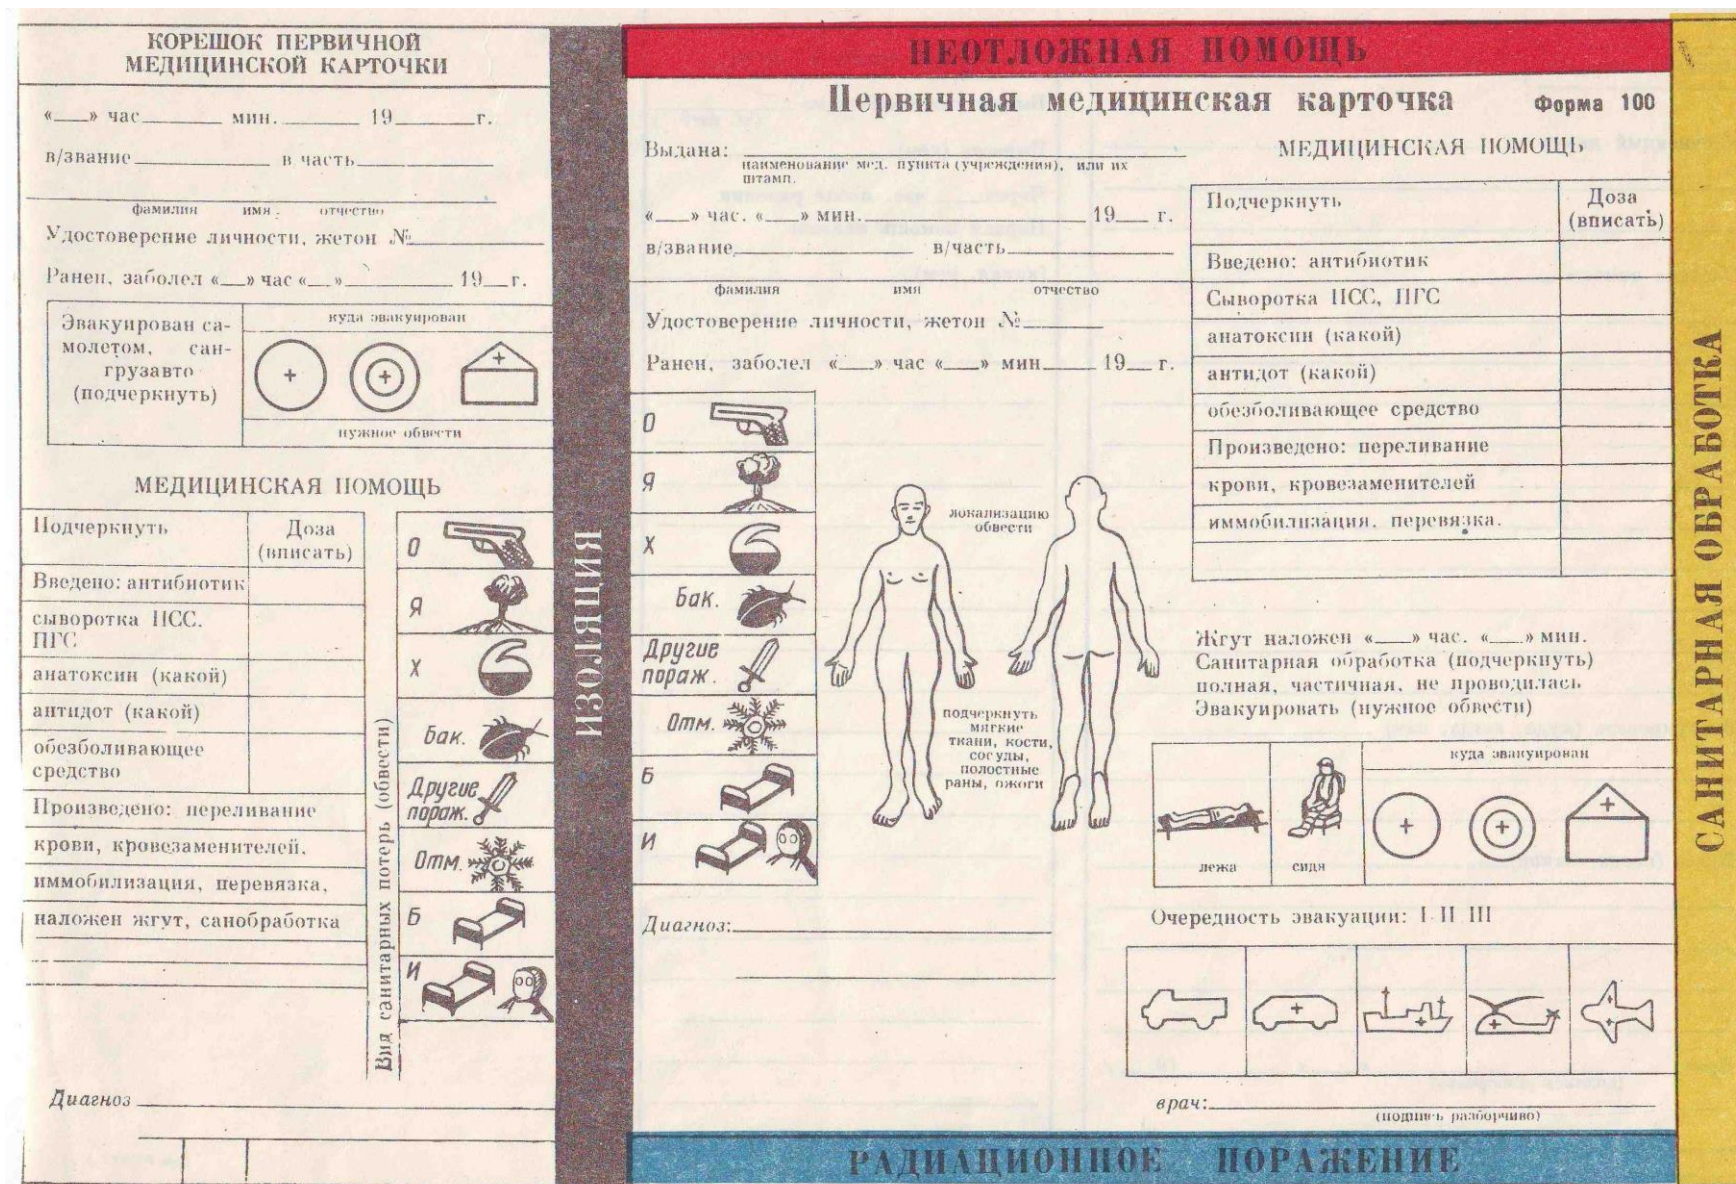 КОРЕШОК ПЕРВИЧНОЙ
МЕДИЦИНСКОЙ КАРТОЧКИ
«___» час________ мин.________ 19______г.
в/звание__________ в часть__________
фамилия имя отчество
Удостоверение личности, жетон №________
Ранен, заболел «___» час «___»__________ 19__г.
Эвакуирован са-
молетом, сан-
грузавто
(подчеркнуть)
куда эвакуирован
нужное обвести
МЕДИЦИНСКАЯ ПОМОЩЬ
Подчеркнуть
Доза
(вписать)
Введено: антибиотик
сыворотка ПСС.
ПГС
анатоксин (какой)
антидот (какой)
обезболивающее
средство
Произведено: переливание
крови, кровезаменителей,
иммобилизация, перевязка,
наложен жгут, санобработка
Вид санитарных потерь (обвести)
О
Я
Х
Бак.
Другие
пораж.
Отм.
Б
И
Диагноз
ИЗОЛЯЦИЯ
НЕОТЛОЖНАЯ ПОМОЩЬ
Первичная медицинская карточка Форма 100
Выдана:
наименование мед. пункта (учреждения), или их
штамп.
«___» час. «___» мин.______________ 19___ г.
в/звание__________ в/часть__________
фамилия имя отчество
Удостоверение личности, жетон №________
Ранен, заболел «___» час «___» мин_____ 19__ г.
О
Я
Х
Бак.
Другие
пораж.
Отм.
Б
И
локализацию
обвести
подчеркнуть
мягкие
ткани, кости,
сосуды,
полостные
раны, ожоги
Диагноз:
МЕДИЦИНСКАЯ ПОМОЩЬ
Подчеркнуть
Доза
(вписать)
Введено: антибиотик
Сыворотка ПСС, ПГС
анатоксин (какой)
антидот (какой)
обезболивающее средство
Произведено: переливание
крови, кровезаменителей
иммобилизация. перевязка.
Жгут наложен «___» час. «___» мин.
Санитарная обработка (подчеркнуть)
полная, частичная, не проводилась
Эвакуировать (нужное обвести)
лежа
сидя
куда эвакуирован
Очередность эвакуации: I II III
врач:
(подпись разборчиво)
РАДИАЦИОННОЕ ПОРАЖЕНИЕ
САНИТАРНАЯ ОБРАБОТКА